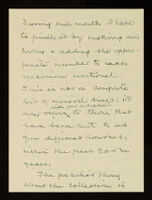 During this month I hope
to finish it by making an
index & adding the appro-
priate number to each
specimen mentioned.
This is not a complete
list of mineral drugs; it
only refers to those that
have been sent to us
from different sources
within the past 20 or 30
years.
The peculiar thing
about the collection is